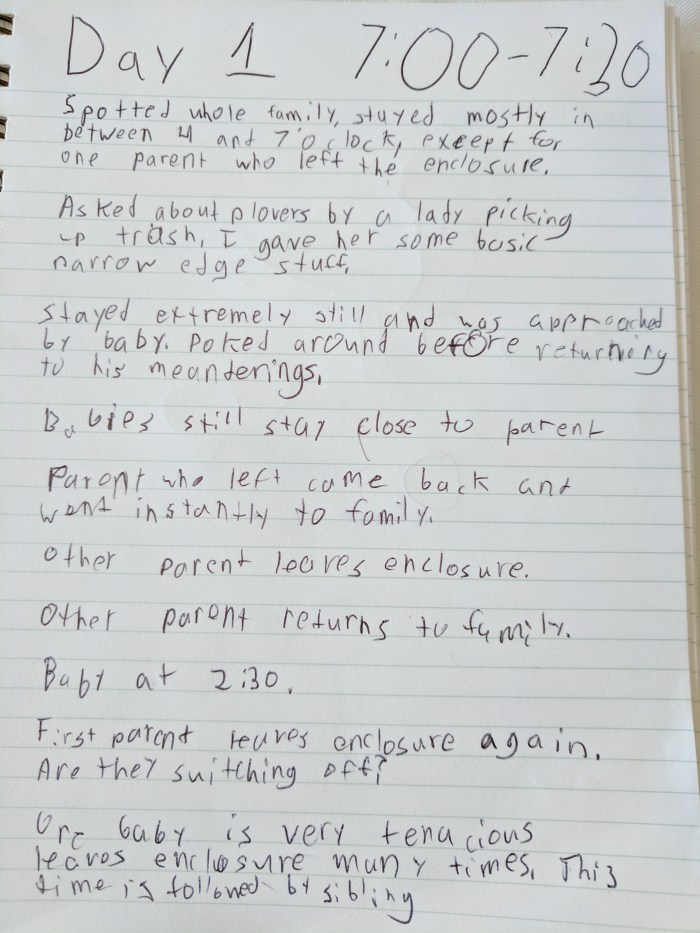 Day 1 7:00-7:30
Spotted whole family, stayed mostly in
between 4 and 7 o'clock, except for
one parent who left the enclosure.
Asked about plovers by a lady picking
up trash, I gave her some basic
narrow edge stuff.
Stayed extremely still and was approached
by baby. Poked around before returning
to his meanderings.
Babies still stay close to parent
Parent who left came back and
went instantly to family.
Other parent leaves enclosure.
Other parent returns to family.
Baby at 2:30.
First parent leaves enclosure again.
Are they switching off?
One baby is very tenacious
leaves enclosure many times. This
time is followed by sibling